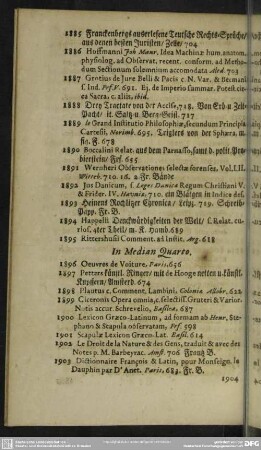 1885 Franckenbergs außerlesene Teutsche Rechts-Sprüche,
aus denen besten Juristen / Zeitz, 704
1886 Hoffmanni Joh. Maur. Idea Machinæ hum. anatom.
physiolog. ad Observat. recent. conform. ad Metho-
dum Sectionum solennium accomodata Altd. 703
1887 Grotius de Jure Belli & Pacis c. N. Var. & Becmanni
f. Ind. Frf. V. 691. Ej. de Imperio summar. Potest. cir-
ca Sacra, c. aliis, ibid.
1888 Drey Tractate von der Accise, 718. Von Erb- u Zell-
Pacht / it. Saltz- u. Beet-Geist. 717
1889 le Grand Institutio Philosophiæ, secundum Principia
Cartesii, Norimb. 695. Triglers von der Sphæra, m.
fig. F. 678
1890 Boccalini Relat. aus dem Parnasso, samt d. polit. Pro-
bierstein / Frf. 655
1891 Wernheri Observationes selectæ forenses, Vol. I. II.
Witteb. 710. sq. 2 Fr. Bände
1892 Jos Danicum, s. Leges Danicæ Regum Christiani V.
& Frider. IV. Havniæ, 710. ein Blätgen in Indice def.
1893 Heinens Rochlitzer Chronica / Leipz. 719. Schreib-
Papp. Fr. B.
1894 Happelii Denckwürdigkeiten der Welt / s. Relat. cu-
rios. 4ter Theil / m. K. Hamb. 689
1895 Rittershusii Comment. ad Instit. Arg. 618
In Median Quarto.
1896 Oeuvres de Voiture, Paris, 656
1897 Petters künstl. Ringer / mit de Hooge netten u. künstl.
Kupfern / Amsterd. 674
1898 Plautus c. Comment. Lambini, Coloniæ Allobr. 622
1899 Ciceronis Opera omnia, c. selectiss. Gruteri & Varior.
Notis accur Schrevelio, Basileæ, 687
1900 Lexicon Græco-Latinum, ad formam ab Henr. Ste-
phano & Scapula observatam, Frf. 598
1901 Scapulæ Lexicon Græco-Lat. Basil. 614
1902 Le Droit de la Nature & des Gens, traduit & avec des
Notes p. M. Barbeyrac. Amst. 706 Frantz B.
1903 Dictionnaire François & Latin, pour Monseign. le
Dauphin par D' Anet. Paris, 684. Fr. B.
1904